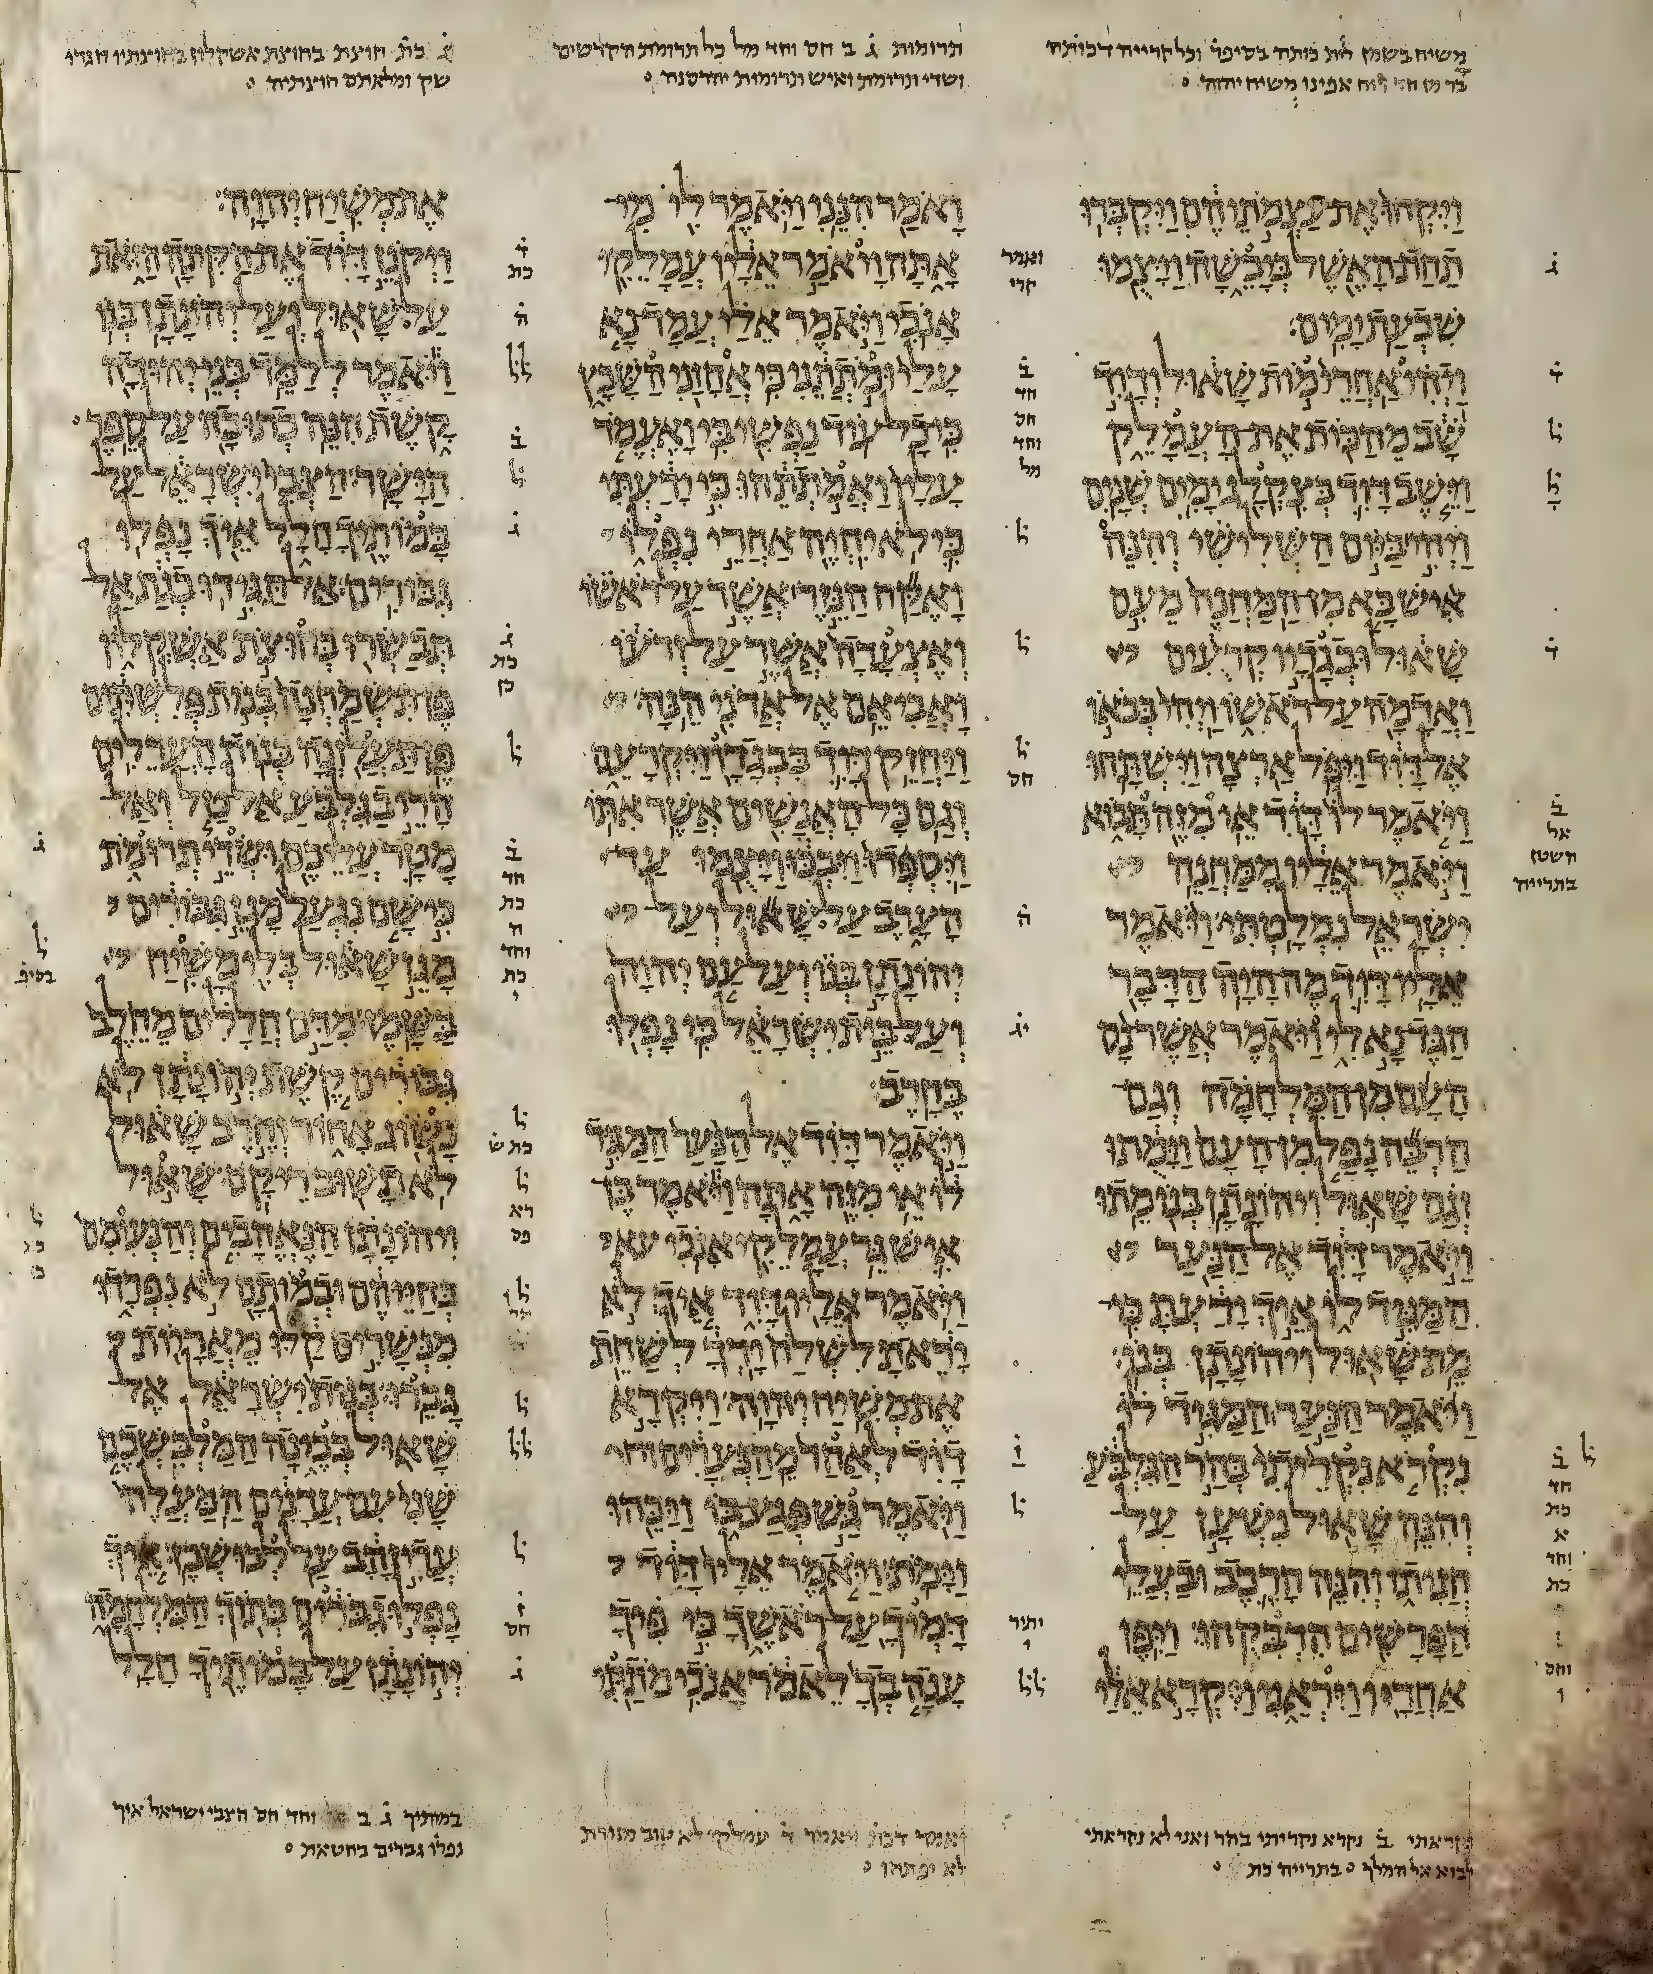 משיח בשמן לית כותה בסיפר וכל קרייה דכותה
בר מן חד רוח אפינו משיח יהוה
תרומות ג ב חס וחד מל כל תרומת הקדשים
ושדי תרומת ואיש תרומות יהרסנה
ג כת חוצת בחוצת אשקלון בחוצתיו חגרו
שק ומלאתם חוצתיה
ויקחו את עצמתיהם ויקברו
תחת האשל ביבשה ויצמו
שבעת ימים׃
ויהי אחרי מות שאול ודוד
שב מהכות את העמלק
וישב דוד בצקלג ימים שנים
ויהי ביום השלישי והנה
איש בא מן המחנה מעם
שאול ובגדיו קרעים
ואדמה על ראשו ויהי בבאו
אל דוד ויפל ארצה וישתחו
ויאמר לו דוד אי מזה תבוא
ויאמר אליו ממחנה
ישראל נמלטתי ויאמר
אליו דוד מה היה הדבר
הגד נא לי ויאמר אשר נס
העם מן המלחמה וגם
הרבה נפל מן העם וימתו
וגם שאול ויהונתן בנו מתו
ויאמר דוד אל הנער
המגיד לו איך ידעת כי
מת שאול ויהונתן בנו׃
ויאמר הנער המגיד לו
נקרא נקריתי בהר הגלבע
והנה שאול נשען על
חניתו והנה הרכב ובעלי
הפרשים הדבקהו ויפן
אחריו ויראני ויקרא אלי
ואמר הנני ויאמר לי מי
אתה ויאמר אליו עמלקי
אנכי ויאמר אלי עמד נא
עלי ומתתני כי אחזני השבץ
כי כל עוד נפשי בי ואעמד
עליו ואמתתהו כי ידעתי
כי לא יחיה אחרי נפלו
ואקח הנזר אשר על ראשו
ואצעדה אשר על זרעו
ואביאם אל אדני הנה׃
ויחזק דוד בבגדו ויקרעם
וגם כל האנשים אשר אתו
ויספדו ויבכו ויצמו עד
הערב על שאול ועל
יהונתן בנו ועל עם יהוה
ועל בית ישראל כי נפלו
בחרב׃
ויאמר דוד אל הנער המגיד
לו אי מזה אתה ויאמר בן
איש גר עמלקי אנכי
ויאמר אליו דוד איך לא
יראת לשלח ידך לשחת
את משיח יהוה׃ ויקרא
דוד לאחד מהנערים
ויאמר גש פגע בו ויכהו
וימת׃ ויאמר אליו דוד
דמיך על ראשך כי פיך
ענה בך לאמר אנכי מתתי
את משיח יהוה׃
ויקנן דוד את הקינה הזאת
על שאול ועל יהונתן בנו
ויאמר ללמד בני יהודה
קשת הנה כתובה על ספר
הישר׃ הצבי ישראל על
במותיך חלל איך נפלו
גבורים׃ אל תגידו בגת אל
תבשרו בחוצת אשקלון
פן תשמחנה בנות פלשתים
פן תעלזנה בנות הערלים
הרי בגלבע אל טל ואל
מטר עליכם ושדי תרומת
כי שם נגעל מגן גבורים
מגן שאול בלי משיח
בשמן׃ מדם חללים מחלב
גבורים קשת יהונתן לא
נשוג אחור וחרב שאול
לא תשוב ריקם׃ שאול
ויהונתן הנאהבים והנעימם
בחייהם ובמותם לא נפרדו
מנשרים קלו מאריות
גברו׃ בנות ישראל אל
שאול בכינה המלבשכם
שני עם עדנים המעלה
עדי זהב על לבושכן׃ איך
נפלו גברים בתוך המלחמה
יהונתן על במותיך חלל
נקראתי ב נקרא נקריתי בהר ואני לא נקראתי
לבוא אל המלך בתרייה כת
ואמר דכת ויאמר עמלקי לא טוב
במתיך ג ב וחד חס הצבי ישראל איך
נפלו גברים בחטאת